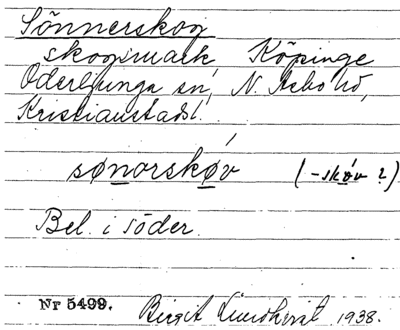 Sönnerskog
skogsmark Köpinge
Oderljunga sn, N. Åsbo hd,
Kristianstads l.
sønorskóv (-skóv ?)
Bel. i söder.
Nr 5499. Birgit Lundkvist 1938.